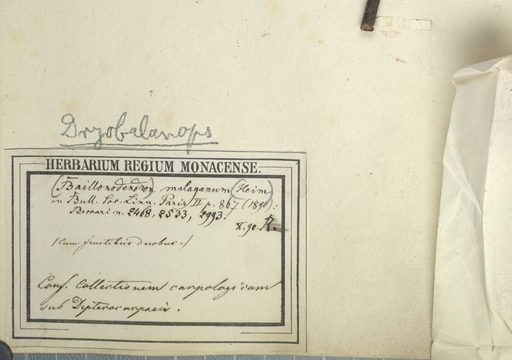 Dryobalanops
HERBARIUM REGIUM MONACENSE.
(Baillonodendron) malayanum (Heim
in Bull. Soc. Linn. Paris II p. 867 (1890):
Beccari n. 2468, 2533, 2993.
X.90. R.
(Cum fructibus duobus.)
Conf. Collectionem carpologicam
sub Dipterocarpaceis.